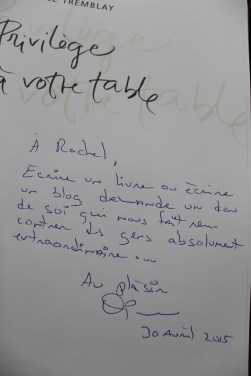 TREMBLAY
Privilège
à votre table
À Rachel,
Écrire un livre ou écrire
un blog demande un don
de soi qui nous fait ren
contrer des gens absolument
extraordinaire ...
Au plaisir
30 Avril 2015